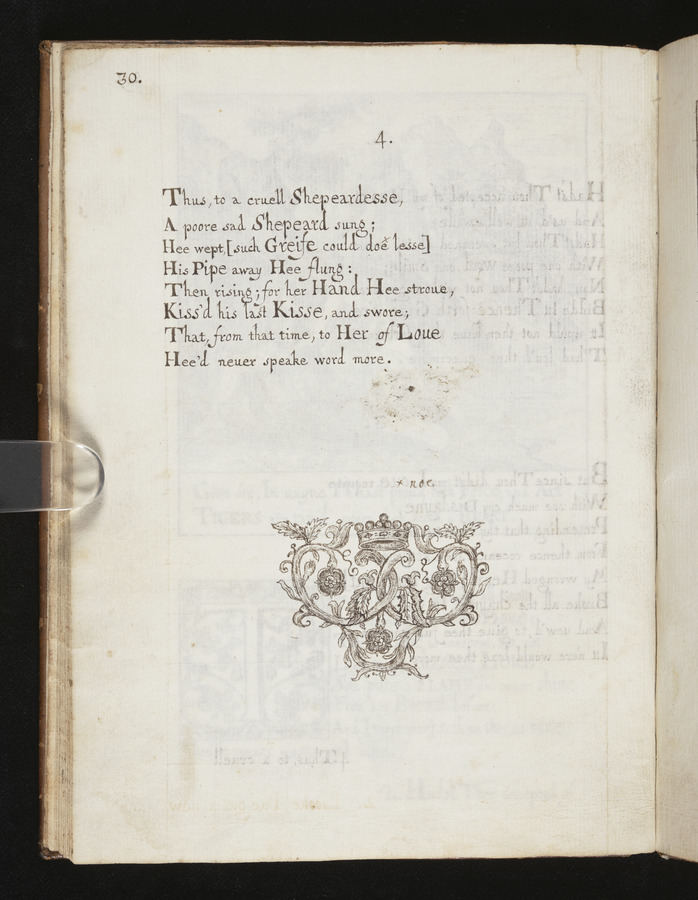 30.
4.
Thus, to a cruell Shepeardesse,
A poore sad Shepeard sung;
Hee wept, [such Greife could doe˟ lesse]
His Pipe away Hee flung:
Then rising; for her Hand Hee stroue,
Kiss'd his last Kisse, and swore;
That, from that time, to Her of Loue
Hee'd neuer speake word more.
× noe.